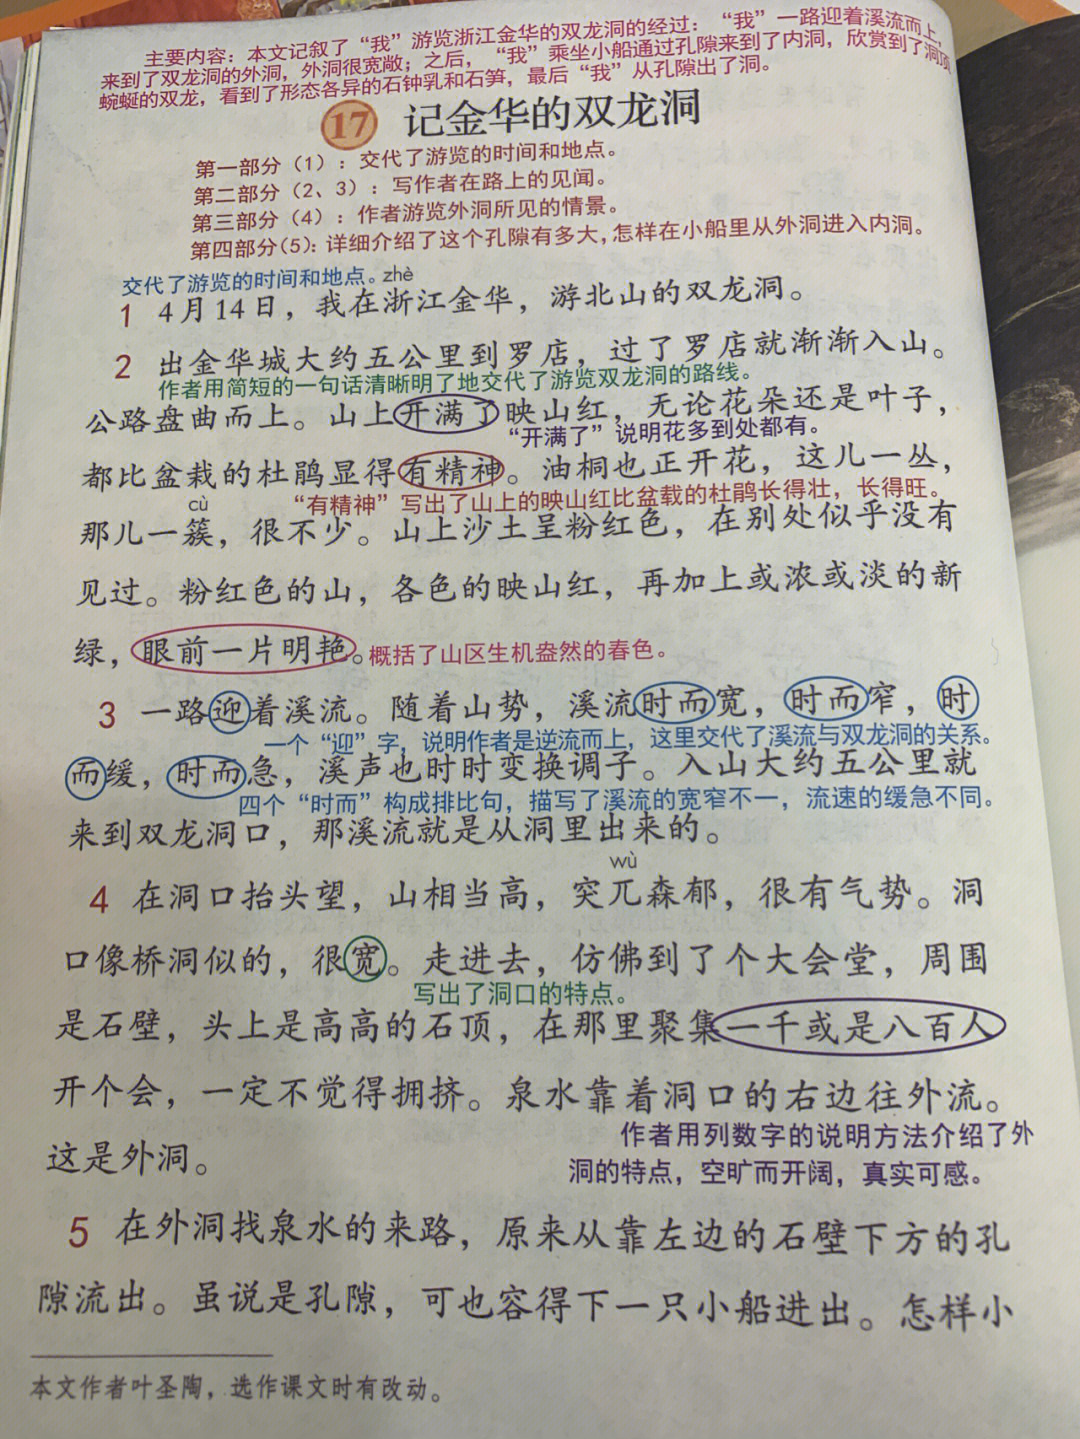 主要内容：本文记叙了“我”游览浙江金华的双龙洞的经过：“我”一路迎着溪流而上，
来到了双龙洞的外洞，外洞很宽敞；之后，“我”乘坐小船通过孔隙来到了内洞，欣赏到了洞顶
蜿蜒的双龙，看到了形态各异的石钟乳和石笋，最后“我”从孔隙出了洞。
17 记金华的双龙洞
第一部分（1）：交代了游览的时间和地点。
第二部分（2、3）：写作者在路上的见闻。
第三部分（4）：作者游览外洞所见的情景。
第四部分（5）：详细介绍了这个孔隙有多大，怎样在小船里从外洞进入内洞。
交代了游览的时间和地点。zhè
1 4月14日，我在浙江金华，游北山的双龙洞。
2 出金华城大约五公里到罗店，过了罗店就渐渐入山。
作者用简短的一句话清晰明了地交代了游览双龙洞的路线。
公路盘曲而上。山上开满了映山红，无论花朵还是叶子，
“开满了”说明花多到处都有。
都比盆栽的杜鹃显得有精神。油桐也正开花，这儿一丛，
cù “有精神”写出了山上的映山红比盆栽的杜鹃长得壮，长得旺。
那儿一簇，很不少。山上沙土呈粉红色，在别处似乎没有
见过。粉红色的山，各色的映山红，再加上或浓或淡的新
绿，眼前一片明艳。概括了山区生机盎然的春色。
3 一路迎着溪流。随着山势，溪流时而宽，时而窄，时
一个“迎”字，说明作者是逆流而上，这里交代了溪流与双龙洞的关系。
而缓，时而急，溪声也时时变换调子。入山大约五公里就
四个“时而”构成排比句，描写了溪流的宽窄不一，流速的缓急不同。
来到双龙洞口，那溪流就是从洞里出来的。
wù
4 在洞口抬头望，山相当高，突兀森郁，很有气势。洞
口像桥洞似的，很宽。走进去，仿佛到了个大会堂，周围
写出了洞口的特点。
是石壁，头上是高高的石顶，在那里聚集一千或是八百人
开个会，一定不觉得拥挤。泉水靠着洞口的右边往外流。
作者用列数字的说明方法介绍了外
这是外洞。
洞的特点，空旷而开阔，真实可感。
5 在外洞找泉水的来路，原来从靠左边的石壁下方的孔
隙流出。虽说是孔隙，可也容得下一只小船进出。怎样小
本文作者叶圣陶，选作课文时有改动。